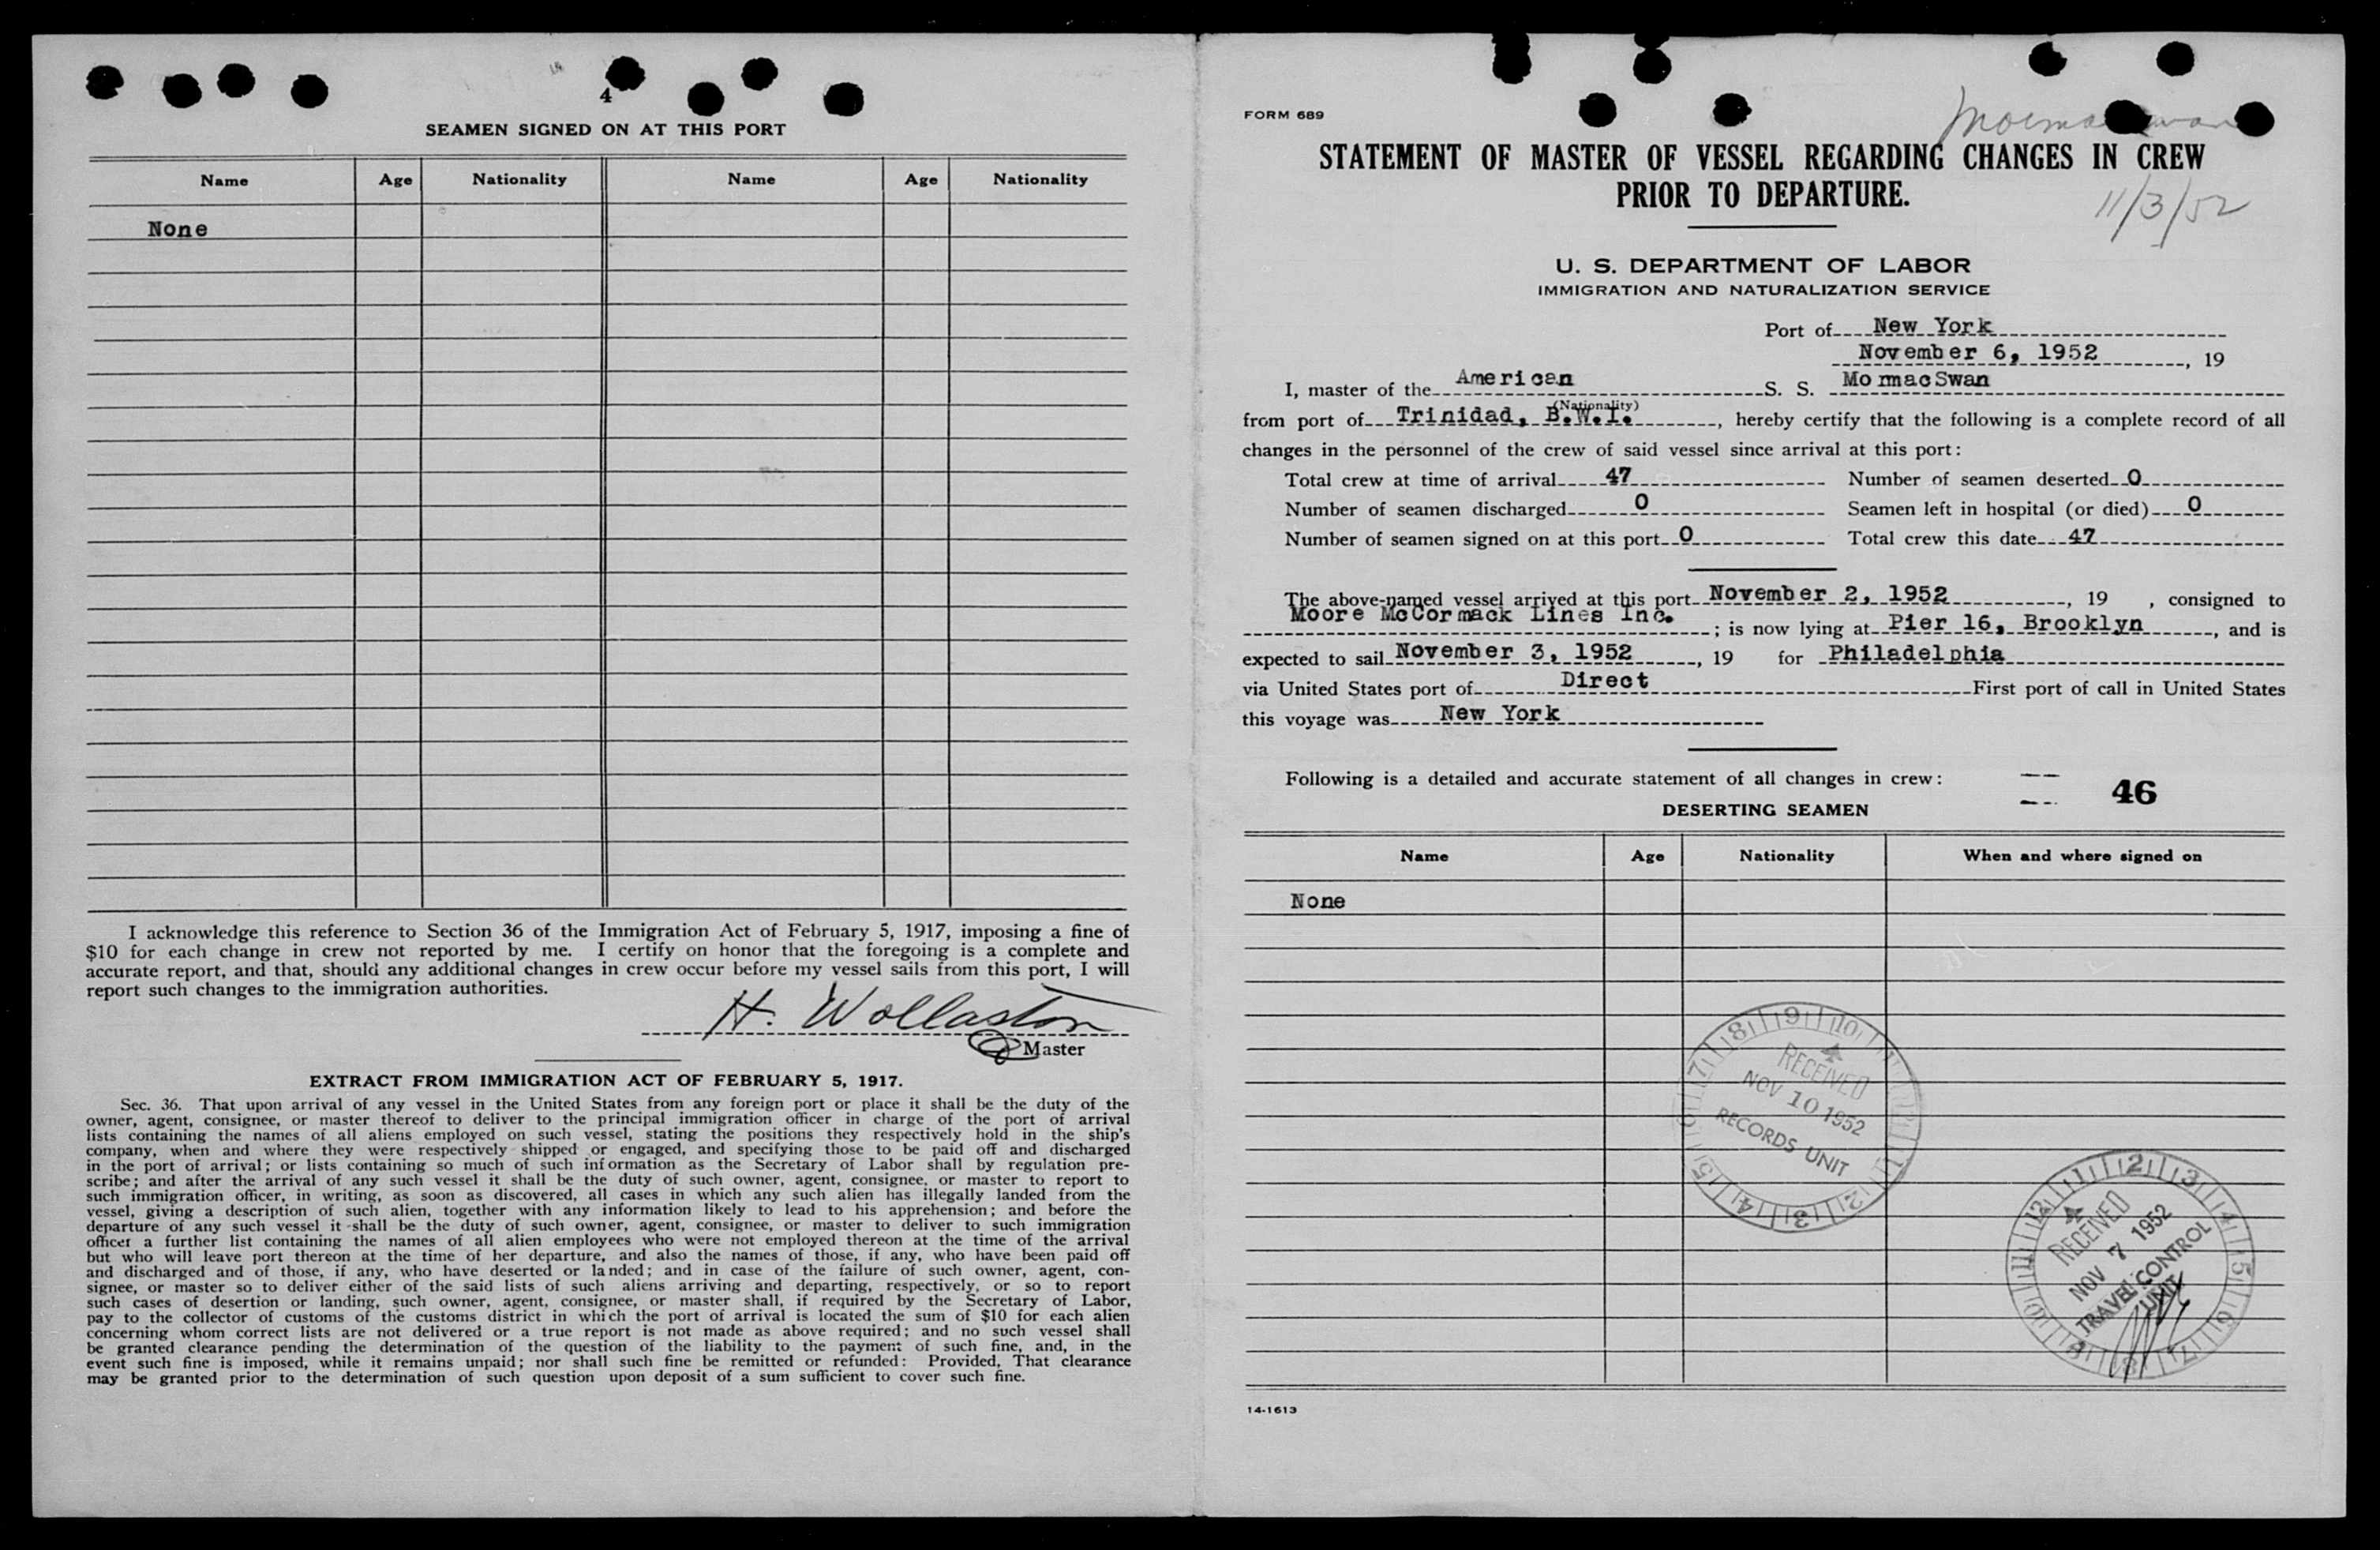 4
SEAMEN SIGNED ON AT THIS PORT
Name Age Nationality Name Age Nationality
None
I acknowledge this reference to Section 36 of the Immigration Act of February 5, 1917, imposing a fine of
$10 for each change in crew not reported by me. I certify on honor that the foregoing is a complete and
accurate report, and that, should any additional changes in crew occur before my vessel sails from this port, I will
report such changes to the immigration authorities.
H. Wollaston
Master
EXTRACT FROM IMMIGRATION ACT OF FEBRUARY 5, 1917.
Sec. 36. That upon arrival of any vessel in the United States from any foreign port or place it shall be the duty of the
owner, agent, consignee, or master thereof to deliver to the principal immigration officer in charge of the port of arrival
lists containing the names of all aliens employed on such vessel, stating the positions they respectively hold in the ship's
company, when and where they were respectively shipped or engaged, and specifying those to be paid off and discharged
in the port of arrival; or lists containing so much of such information as the Secretary of Labor shall by regulation pre-
scribe; and after the arrival of any such vessel it shall be the duty of such owner, agent, consignee, or master to report to
such immigration officer, in writing, as soon as discovered, all cases in which any such alien has illegally landed from the
vessel, giving a description of such alien, together with any information likely to lead to his apprehension; and before the
departure of any such vessel it shall be the duty of such owner, agent, consignee, or master to deliver to such immigration
officer a further list containing the names of all alien employees who were not employed thereon at the time of the arrival
but who will leave port thereon at the time of her departure, and also the names of those, if any, who have been paid off
and discharged and of those, if any, who have deserted or landed; and in case of the failure of such owner, agent, con-
signee, or master so to deliver either of the said lists of such aliens arriving and departing, respectively, or so to report
such cases of desertion or landing, such owner, agent, consignee, or master shall, if required by the Secretary of Labor,
pay to the collector of customs of the customs district in which the port of arrival is located the sum of $10 for each alien
concerning whom correct lists are not delivered or a true report is not made as above required; and no such vessel shall
be granted clearance pending the determination of the question of the liability to the payment of such fine, and, in the
event such fine is imposed, while it remains unpaid; nor shall such fine be remitted or refunded: Provided, That clearance
may be granted prior to the determination of such question upon deposit of a sum sufficient to cover such fine.
FORM 689
STATEMENT OF MASTER OF VESSEL REGARDING CHANGES IN CREW
PRIOR TO DEPARTURE.
11/3/52
U. S. DEPARTMENT OF LABOR
IMMIGRATION AND NATURALIZATION SERVICE
Port of New York
November 6, 1952, 19
I, master of the American S. S. MormacSwan
(Nationality)
from port of Trinidad, B.W.I., hereby certify that the following is a complete record of all
changes in the personnel of the crew of said vessel since arrival at this port:
Total crew at time of arrival 47 Number of seamen deserted 0
Number of seamen discharged 0 Seamen left in hospital (or died) 0
Number of seamen signed on at this port 0 Total crew this date 47
The above-named vessel arrived at this port November 2, 1952, 19 , consigned to
Moore McCormack Lines Inc.; is now lying at Pier 16, Brooklyn, and is
expected to sail November 3, 1952, 19 for Philadelphia
via United States port of Direct First port of call in United States
this voyage was New York
Following is a detailed and accurate statement of all changes in crew:
46
DESERTING SEAMEN
Name Age Nationality When and where signed on
None
RECEIVED
NOV 10 1952
RECORDS UNIT
RECEIVED
NOV 7 1952
TRAVEL CONTROL
UNIT
14-1613